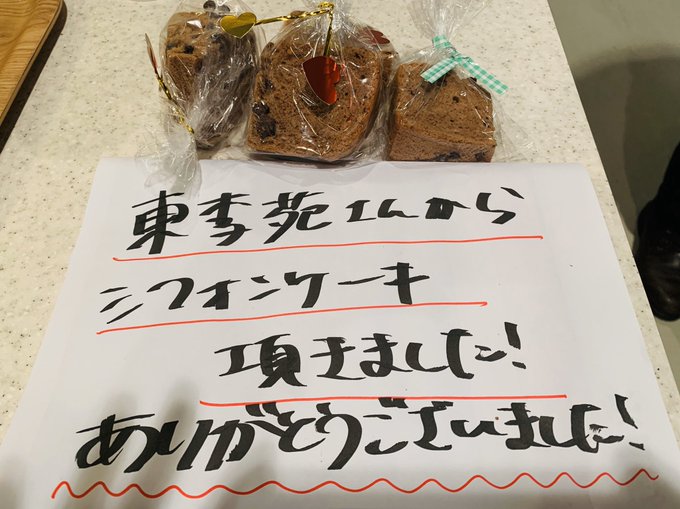 東李苑さんから
シフォンケーキ
頂きました!
ありがとうございました!